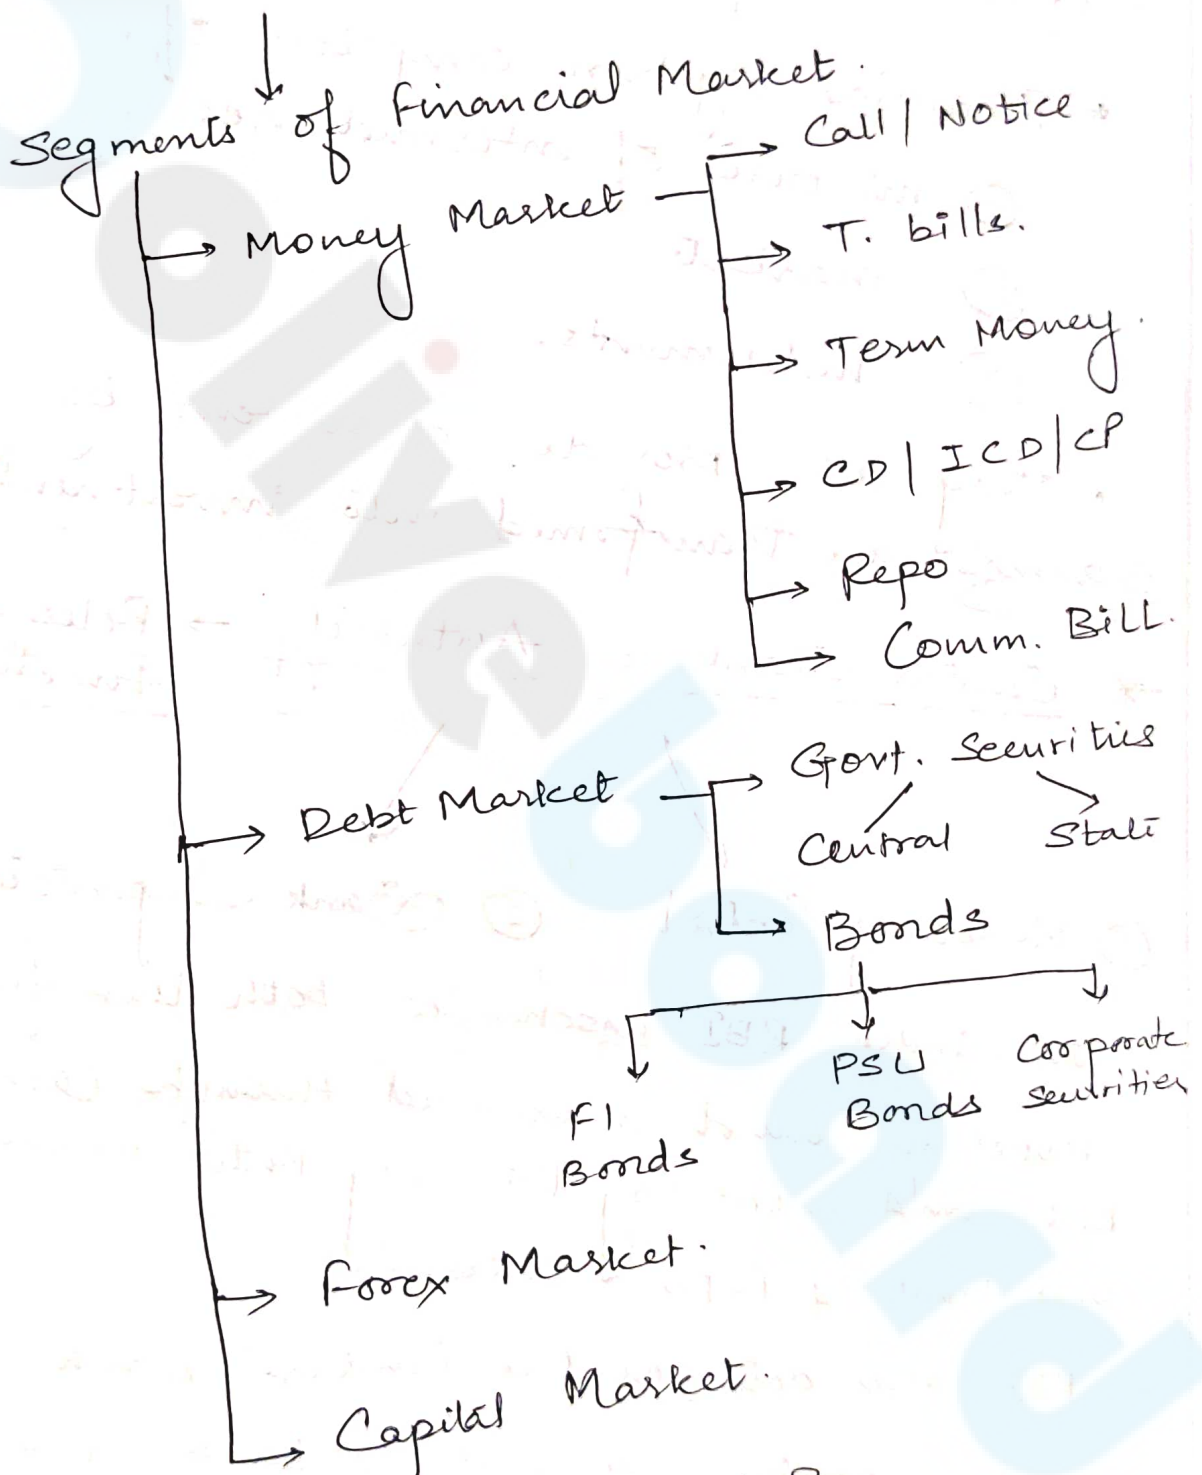 Segments of Financial Market.
Money Market
Call / Notice.
T. bills.
Term Money.
CD / ICD / CP
Repo
Comm. Bill.
Debt Market
Govt. Securities
Central
State
Bonds
FI
Bonds
PSU
Bonds
Corporate
Securities
Forex Market.
Capital Market.
olive board